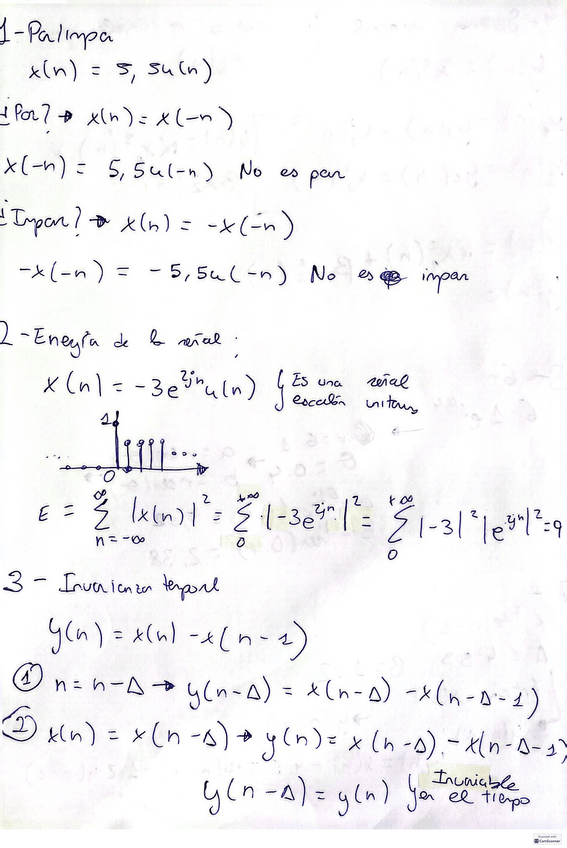 1-Par/impar
x(n) = 5,5u(n)
¿Par? → x(n) = x(-n)
x(-n) = 5,5u(-n) No es par
¿Impar? → x(n) = -x(-n)
-x(-n) = -5,5u(-n) No es impar
2-Energía de la señal:
x(n) = -3e^{2jn}u(n) } Es una señal
escalón unitaria
1
... ...
0
E = ∑_{n=-∞}^{∞} |x(n)|² = ∑_{0}^{+∞} |-3e^{2jn}|² = ∑_{0}^{+∞} |-3|² |e^{2jn}|² = 9
3 - Invarianza temporal
y(n) = x(n) - x(n-1)
① n = n-Δ → y(n-Δ) = x(n-Δ) - x(n-Δ-1)
② x(n) = x(n-Δ) → y(n) = x(n-Δ) - x(n-Δ-1)
y(n-Δ) = y(n) } Invariable
en el tiempo
Scanned with
CamScanner